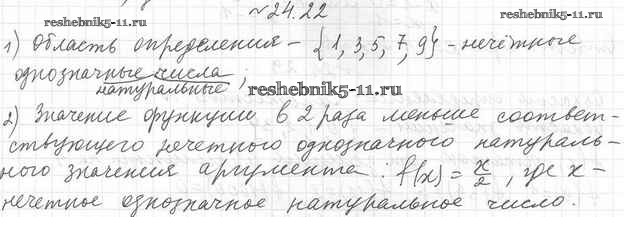 №24.22
reshebnik5-11.ru reshebnik5-11.ru
1) Область определения – {1, 3, 5, 7, 9} – нечётные
однозначные числа
натуральные ;
reshebnik5-11.ru
2) Значение функции в 2 раза меньше соответ-
ствующего нечетного однозначного натураль-
ного значения аргумента : f(x) = x/2, где x –
нечетное однозначное натуральное число.